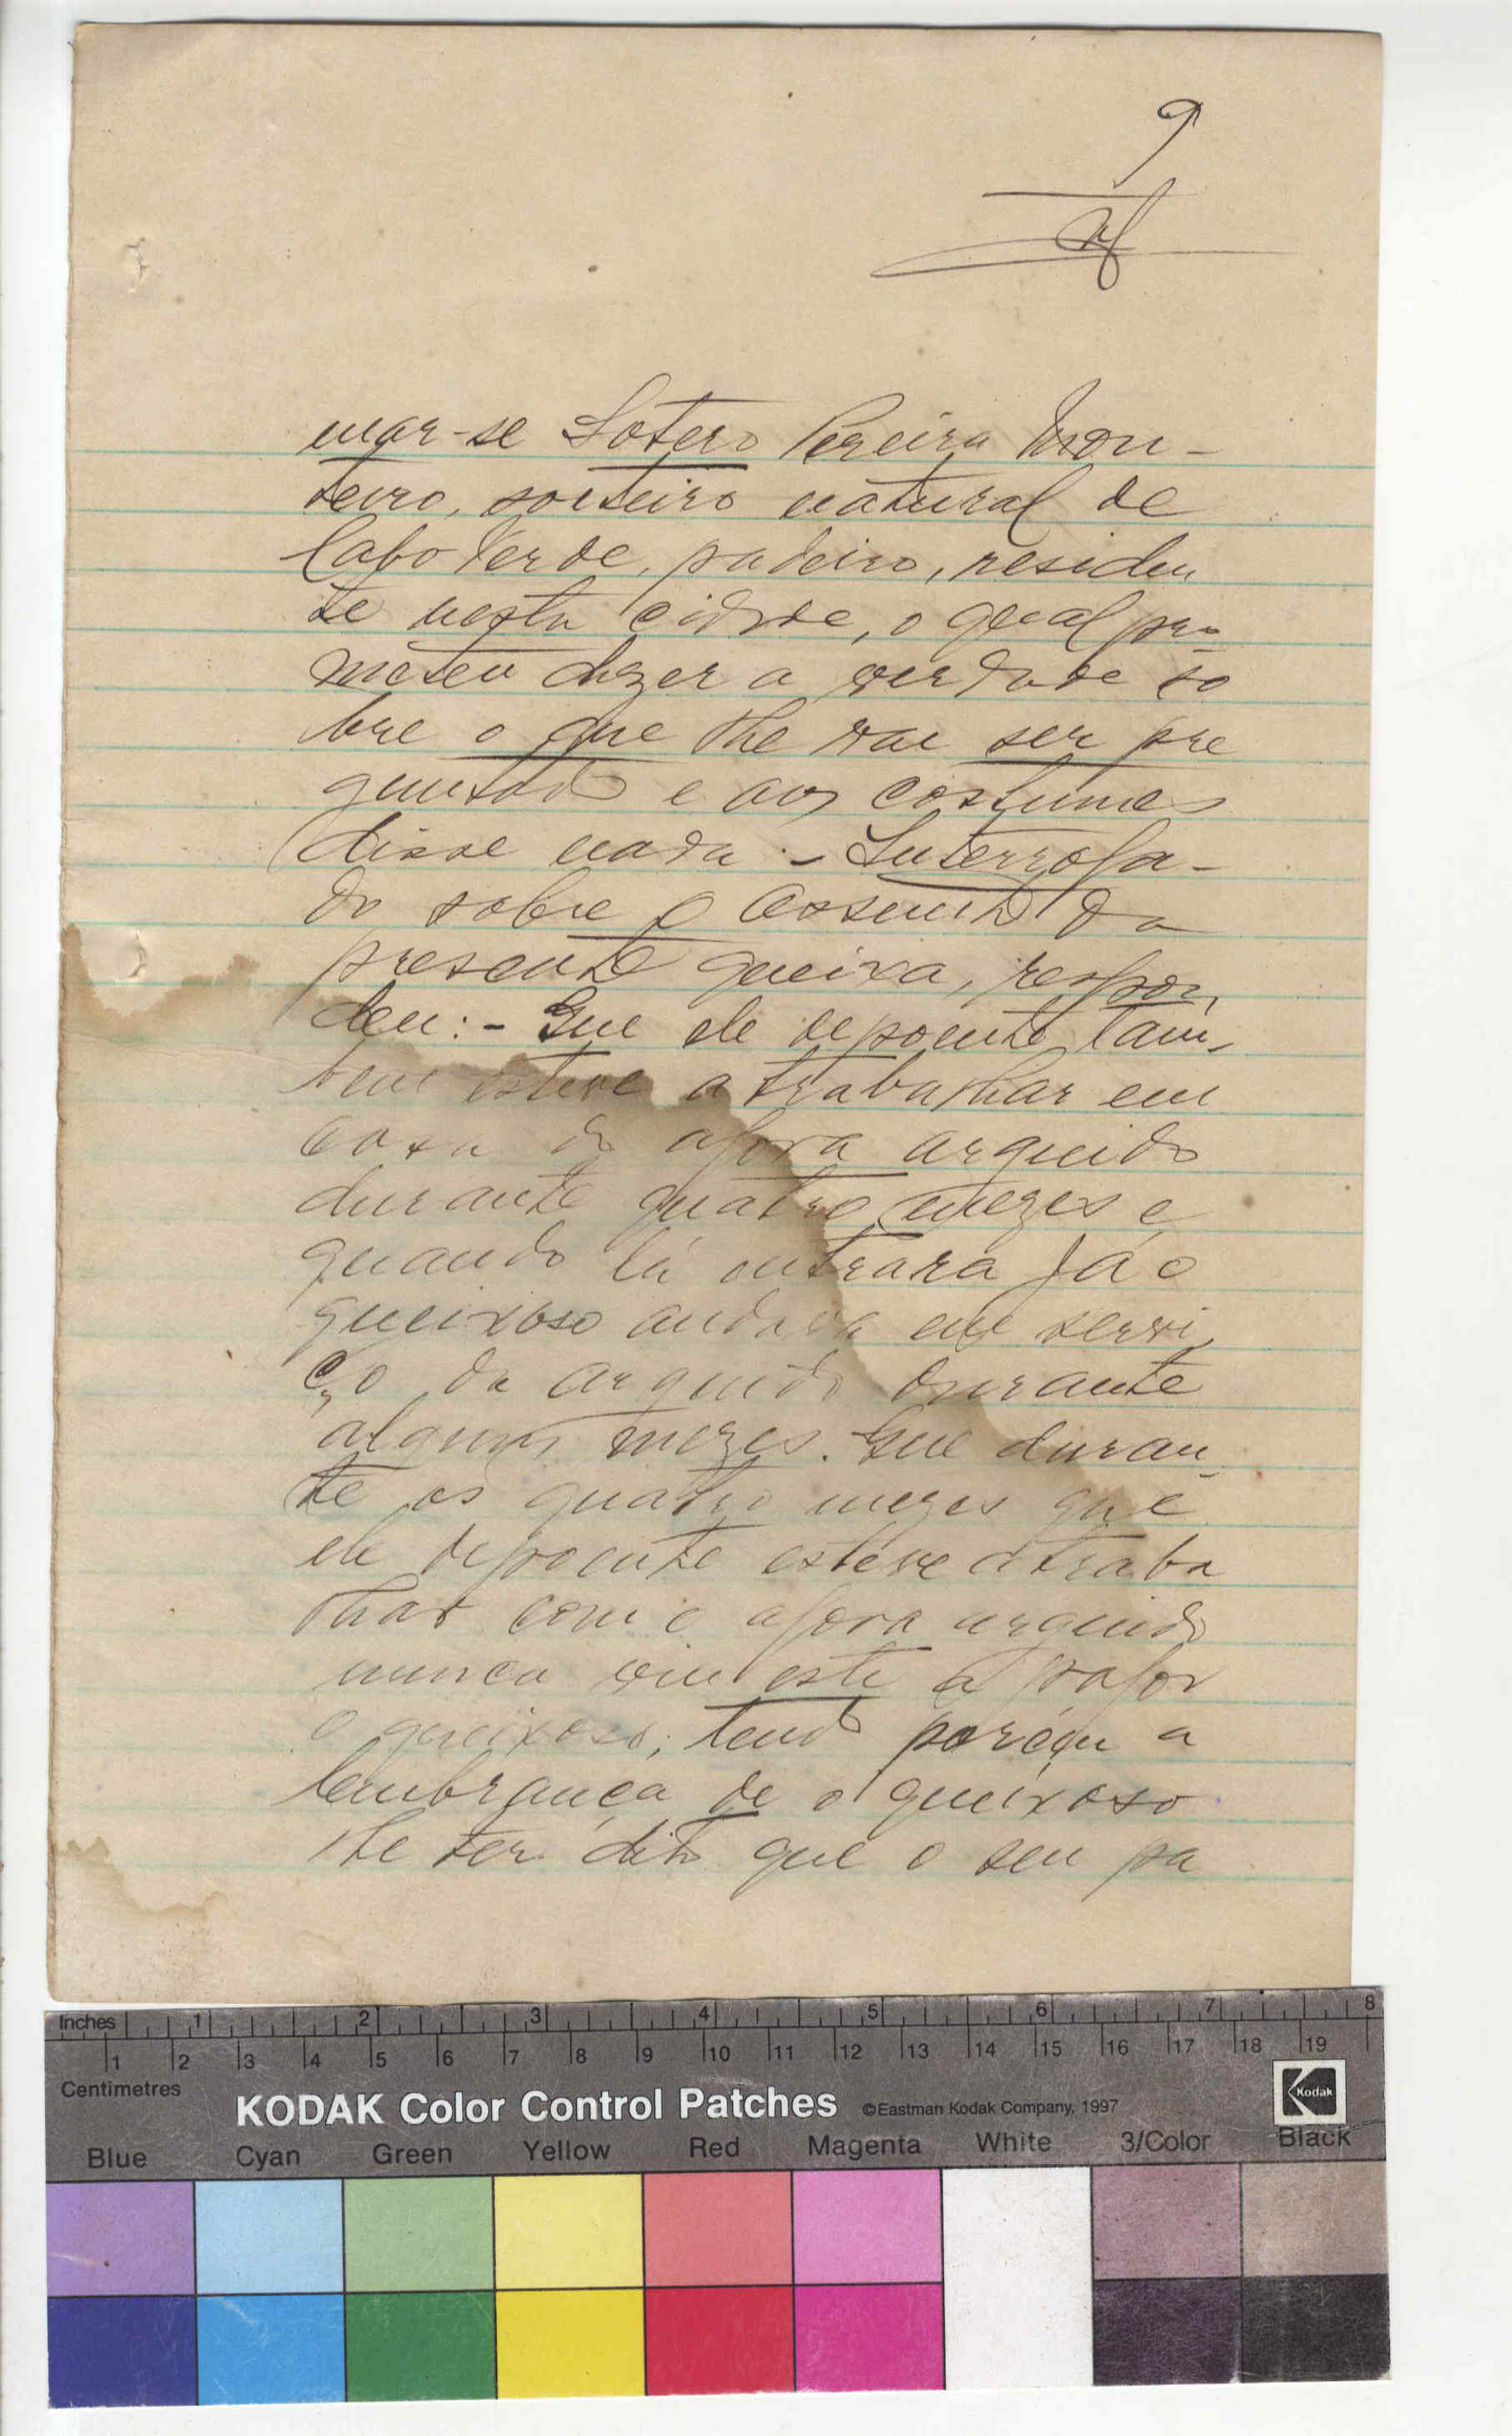 9
mar-se Sotero Pereira Mon-
teiro, solteiro natural de
Cabo Verde, padeiro, residen
te nesta cidade, o qual pro-
meteu dizer a verdade so
bre o que lhe vae ser pre
guntado e aos costumes
disse nada. - Interroga-
do sobre o assunto da
presente queixa, respon-
deu: - Que ele depoente tam-
bem esteve a trabalhar em
casa do agora arguido
durante quatro mezes e
quando lá entrara já o
queixoso andava em servi-
ço do arguido durante
alguns mezes. Que duran-
te os quatro mezes que
ele depoente esteve a traba
lhar com o agora arguido
nunca viu este a pagar
o queixoso; tendo porém a
lembrança de o queixoso
lhe ter dito que o seu pa
Inches 1 2 3 4 5 6 7 8
1 2 3 4 5 6 7 8 9 10 11 12 13 14 15 16 17 18 19
Centimetres
KODAK Color Control Patches ©Eastman Kodak Company, 1997 Kodak
Blue Cyan Green Yellow Red Magenta White 3/Color Black